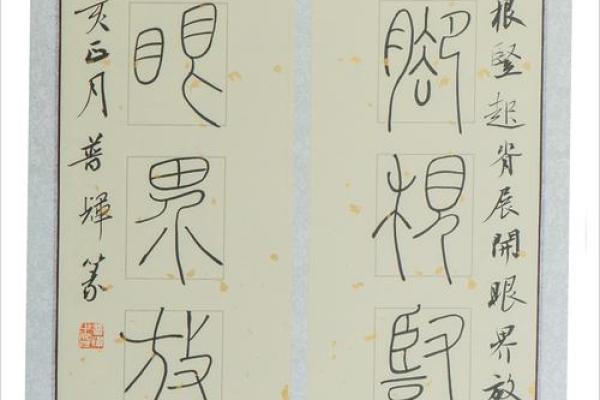 根豎起脊展開眼界放
腳根豎
眼界放
亥正月普輝篆